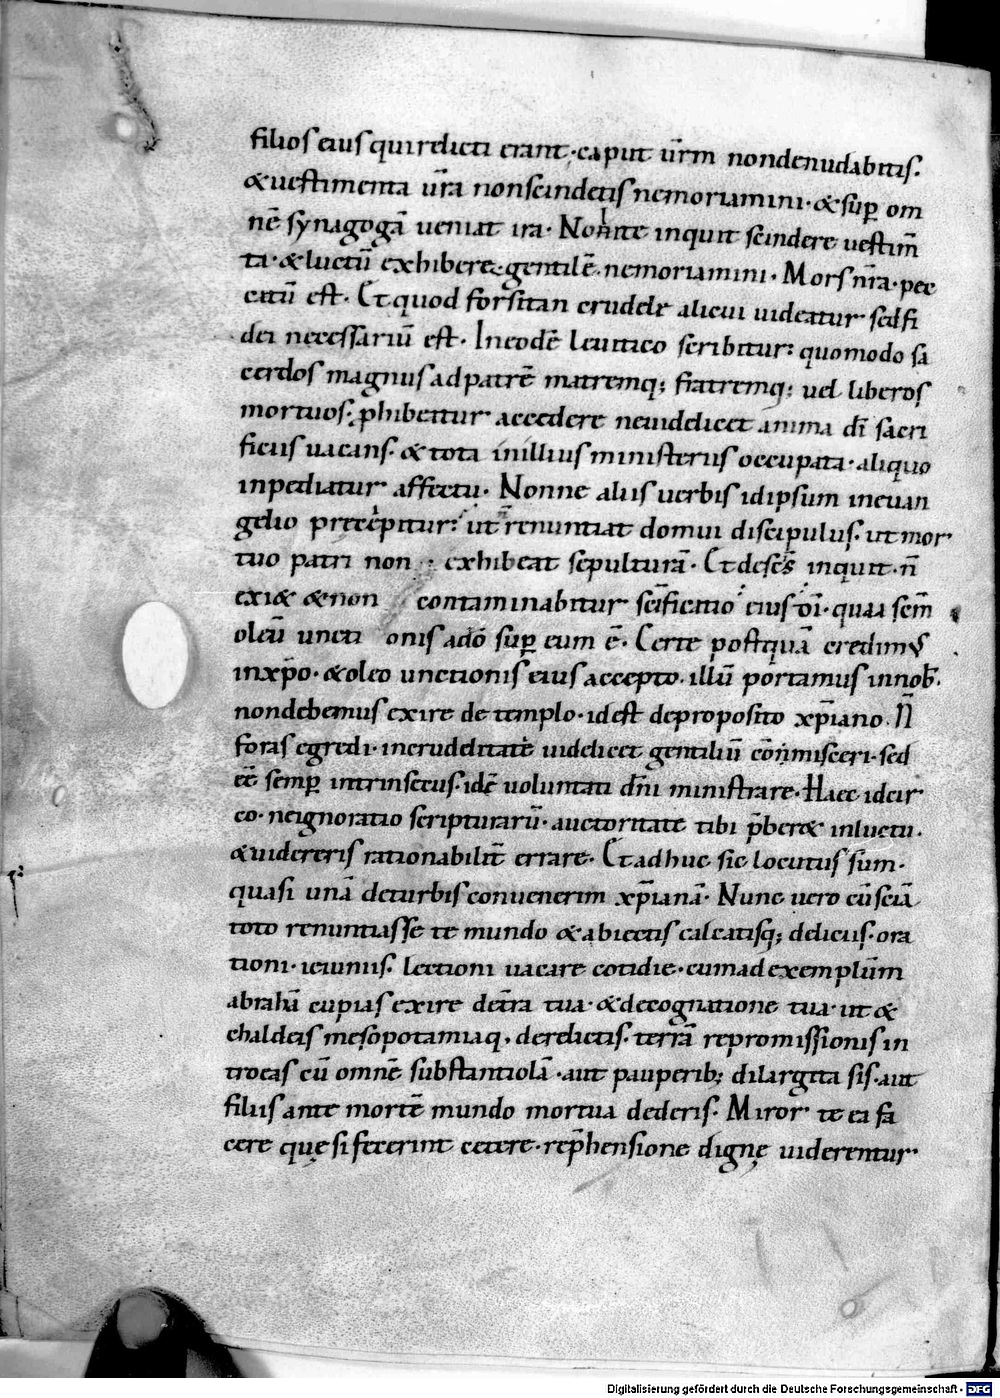 filios eius qui relicti erant· caput ur̄m non denudabitis·
& uestimenta ur̄a non scindetis ne moriamini· & sup̱ om
nē synagogā ueniat ira· Nolite inquit scindere uestim̄
ta· & luctū exhibere gentilē· ne moriamini· Mors nr̄a· pec
catū est· Et quod forsitan crudele alicui uideatur sed fi
dei necessariū est· In eodē leuitico scribitur: quomodo sa
cerdos magnus ad patrē matremq; fratremq; uel liberos
mortuos· p̱hibeatur accedere ne uidelicet anima dī sacri
ficiis uacans· & tota in illius ministeriis occupata· aliquo
inpediatur affectu· Nonne aliis uerbis id ipsum in euan
gelio precipitur: ut renuntiat domui discipulus· ut mor
tuo patri non exhibeat sepulturā· Et de sc̄s inquit· n̄
exi& & non contaminabitur sc̄ificatio eius dī· quia sc̄m
oleū uncti onis a dō sup̱ eum ē· Certe postquā credimus
in xp̄o· & oleo unctionis eius accepto· illū portamus in nob̄·
non debemus exire de templo· id est de proposito xp̄iano· N̄
foras egredi· incrudelitatē uidelicet gentiliū cōmisceri· sed
eē semp̱ intrinsecus· idē uoluntati dn̄i ministrare· Haec idcir
co· ne ignoratio scripturarū· auctoritatē tibi p̄ber& in luctu·
& uidereris rationabilit̄ errare· Et adhuc sic locutus sum·
quasi unā de turbis conuenerim xp̄ianā· Nunc uero cū sciā
toto renuntiasse te mundo & abiectis calcatisq; deliciis· ora
tioni· ieiuniis· lectioni uacare cotidie· cum ad exemplum
abrahā cupias exire de t̄ra tua· & de cognatione tua· ut &
chaldeis mesopotamiaq, derelictis· terrā repromissionis in
troeas cū omnē substantiolā· aut pauperib; dilargita sis· aut
filiis ante mortē mundo mortua dederis· Miror te ea fa
cere quę si fecerint cetere· rep̄hensione dignę uiderentur
Digitalisierung gefördert durch die Deutsche Forschungsgemeinschaft - DFG